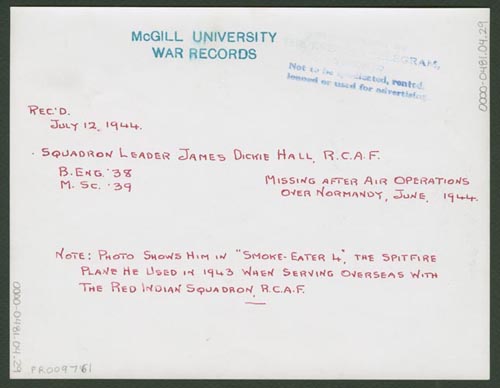 McGILL UNIVERSITY
WAR RECORDS
TELEGRAM,
Not to be syndicated, rented,
loaned or used for advertising.
0000-0481.04.29
REC'D.
JULY 12, 1944.
SQUADRON LEADER JAMES DICKIE HALL, R.C.A.F.
B. ENG. '38
M. SC. '39
MISSING AFTER AIR OPERATIONS
OVER NORMANDY, JUNE, 1944.
NOTE: PHOTO SHOWS HIM IN "SMOKE-EATER 4", THE SPITFIRE
PLANE HE USED IN 1943 WHEN SERVING OVERSEAS WITH
THE RED INDIAN SQUADRON, R.C.A.F.
0000-0481.04.29
PR009761